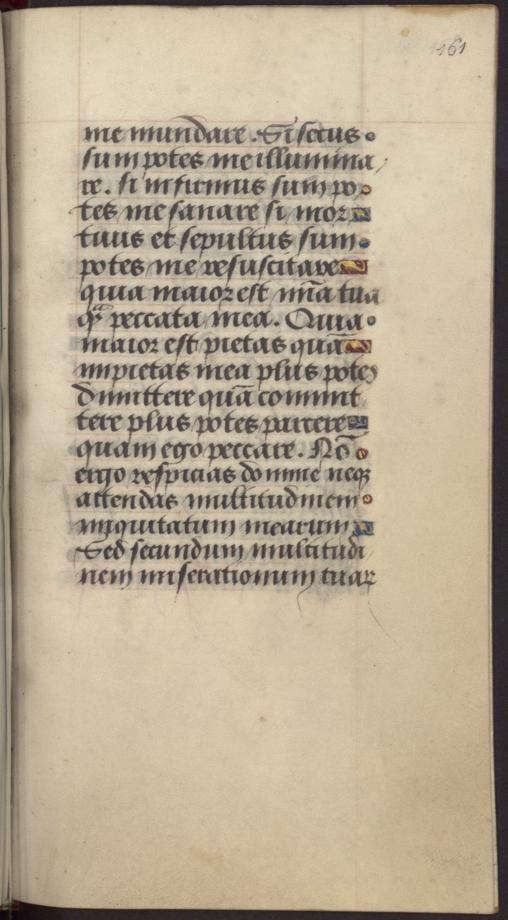 161
me mundare. Si secus
sum potes me illumina
re. si infirmus sum po
tes me sanare si mor
tuus et sepultus sum
potes me resuscitare
quia maior est mĩa tua
qᷓ peccata mea. Quia
maior est pietas quā
impietas mea plus potes
dimittere quā commit
tere plus potes parcere
quam ego peccare. Nō
ergo respicias domine neqꝫ
attendas multitudinem
iniquitatum mearum
Sed secundum multitudi
nem miserationum tuaꝝ